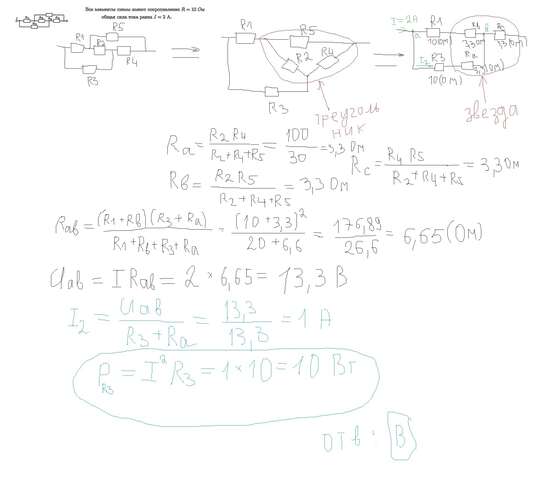 Все элементы схемы имеют сопротивление R = 10 Ом
общая сила тока равна I = 2 А.
R1 R2 R5 R4 R3
R1 R5 R2 R4 R3
треуголь
ник
I=2А
R1
10(Ом)
I2 R3
10(Ом)
звезда
Ra = R2 R4 / R2+R4+R5 = 100 / 30 = 3,3 Ом
Rc = R4 R5 / R2+R4+R5 = 3,3 Ом
Rв = R2 R5 / R2+R4+R5 = 3,3 Ом
Rав = (R1+Rв)(R3+Ra) / R1+Rв+R3+Ra = (10+3,3)² / 20+6,6 = 176,89 / 26,6 = 6,65 (Ом)
Uав = I Rав = 2 × 6,65 = 13,3 В
I2 = Uав / R3+Ra = 13,3 / 13,3 = 1 А
P R3 = I² R3 = 1×10 = 10 Вт
отв: В